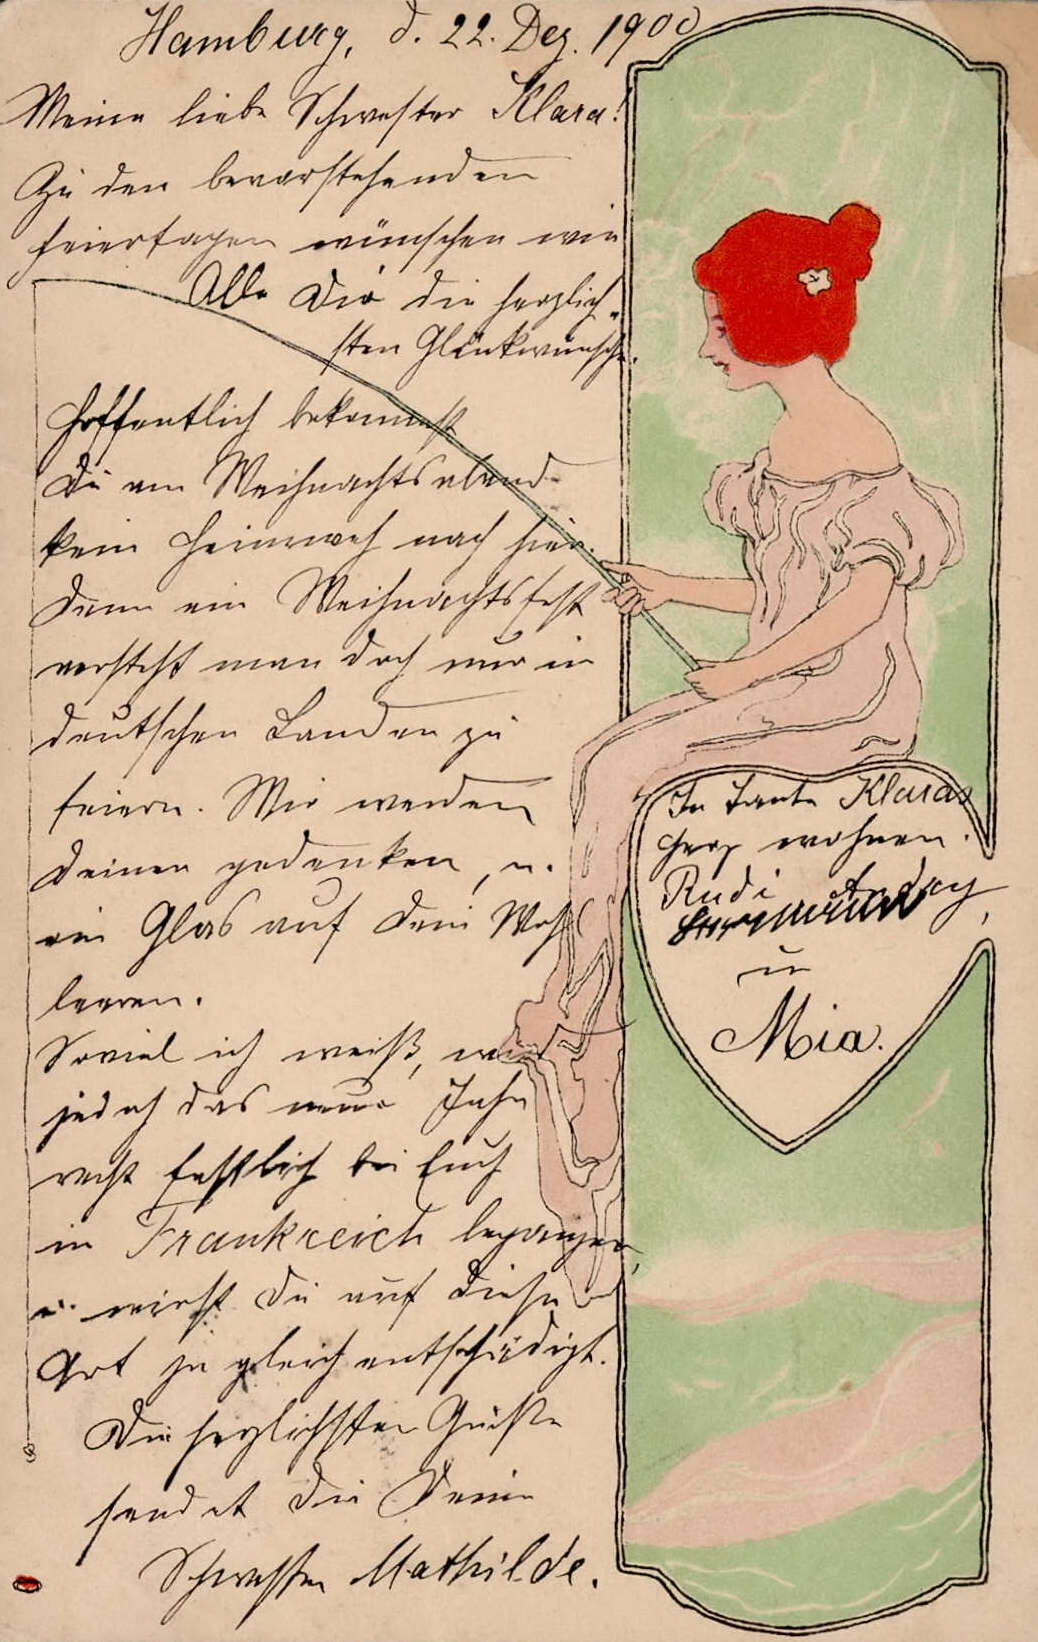 Hamburg, d. 22. Dez. 1900
Meine liebe Schwester Klara!
Zu den bevorstehenden
Feiertagen wünschen wir
Alle Dir die herzlich-
sten Glückwünsche.
Hoffentlich bekommst
Du am Weihnachtsabend
kein Heimweh nach hier.
Denn ein Weihnachtsfest
versteht man doch nur in
deutschen Landen zu
feiern. Wir werden
Deiner gedenken, u.
ein Glas auf Dein Wohl
leeren.
Soviel ich weiß, wird
jedoch das neue Jahr
recht festlich bei Euch
in Frankreich begangen,
u. wirst Du auf diese
Art ja gleich entschädigt.
Die herzlichsten Grüße
sendet Dir Deine
Schwester Mathilde.
In Tante Klaras
Herz wohnen.
Rudi
u
Mia.